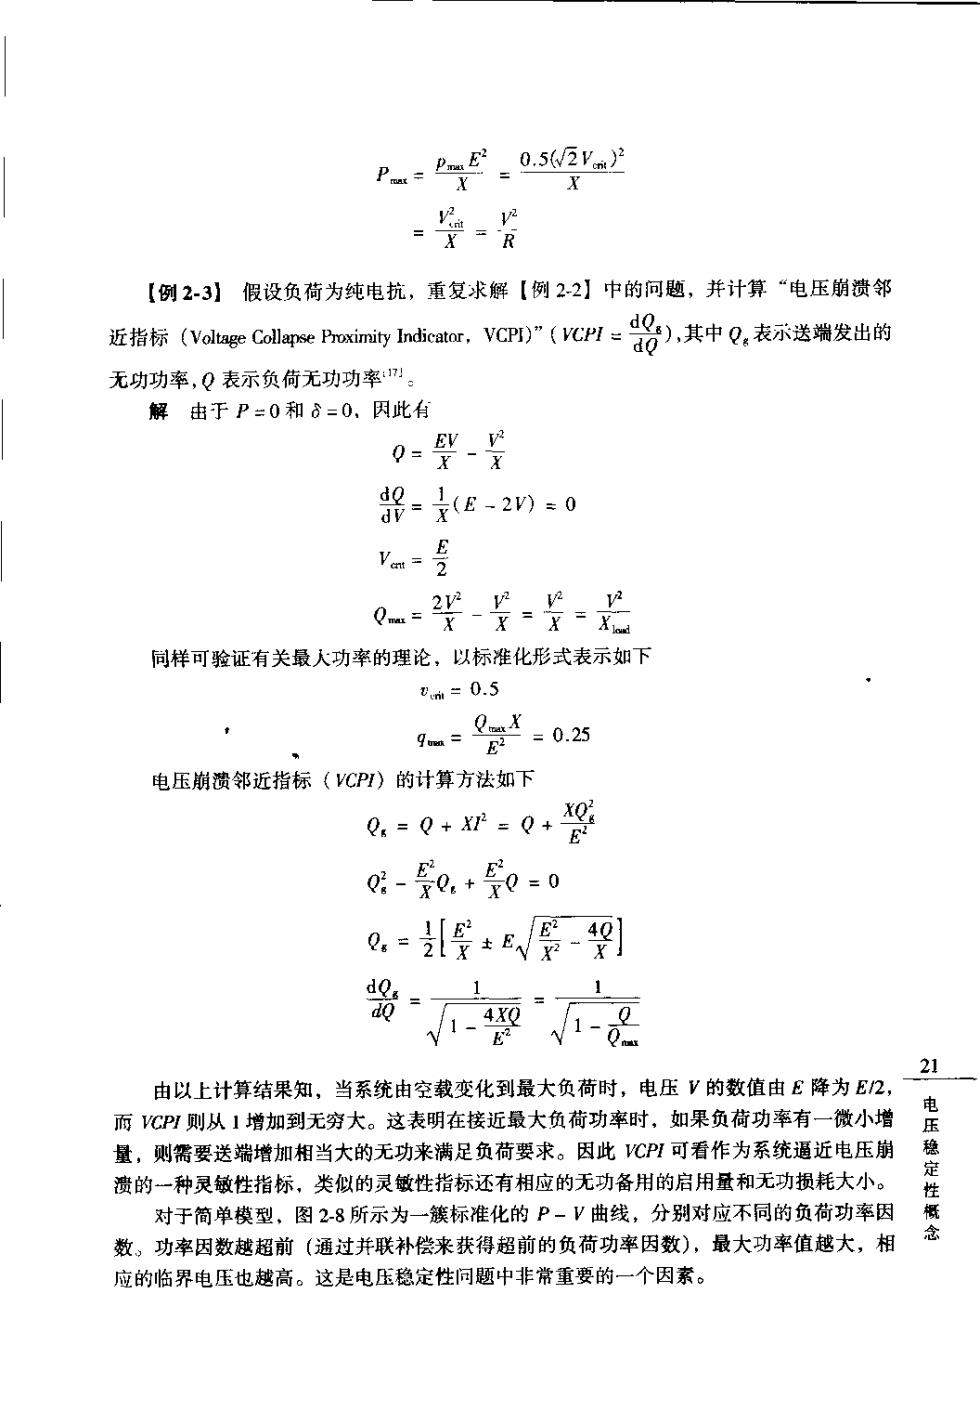 P_max = p_max E² / X = 0.5(√2 V_crit)² / X
= V²_crit / X = V² / R
【例 2-3】 假设负荷为纯电抗，重复求解【例 2-2】中的问题，并计算“电压崩溃邻
近指标（Voltage Collapse Proximity Indicator，VCPI）”（VCPI = dQ_g / dQ），其中 Q_g 表示送端发出的
无功功率，Q 表示负荷无功功率[17]。
解 由于 P = 0 和 δ = 0，因此有
Q = EV / X - V² / X
dQ / dV = 1 / X (E - 2V) = 0
V_crit = E / 2
Q_max = 2V² / X - V² / X = V² / X = V² / X_load
同样可验证有关最大功率的理论，以标准化形式表示如下
v_crit = 0.5
q_max = Q_max X / E² = 0.25
电压崩溃邻近指标（VCPI）的计算方法如下
Q_g = Q + XI² = Q + XQ_g² / E²
Q_g² - E² / X Q_g + E² / X Q = 0
Q_g = 1 / 2 [E² / X ± E √(E² / X² - 4Q / X)]
dQ_g / dQ = 1 / √(1 - 4XQ / E²) = 1 / √(1 - Q / Q_max)
由以上计算结果知，当系统由空载变化到最大负荷时，电压 V 的数值由 E 降为 E/2，
而 VCPI 则从 1 增加到无穷大。这表明在接近最大负荷功率时，如果负荷功率有一微小增
量，则需要送端增加相当大的无功来满足负荷要求。因此 VCPI 可看作为系统逼近电压崩
溃的一种灵敏性指标，类似的灵敏性指标还有相应的无功备用的启用量和无功损耗大小。
对于简单模型，图 2-8 所示为一簇标准化的 P - V 曲线，分别对应不同的负荷功率因
数。功率因数越超前（通过并联补偿来获得超前的负荷功率因数），最大功率值越大，相
应的临界电压也越高。这是电压稳定性问题中非常重要的一个因素。
21
电压稳定性概念